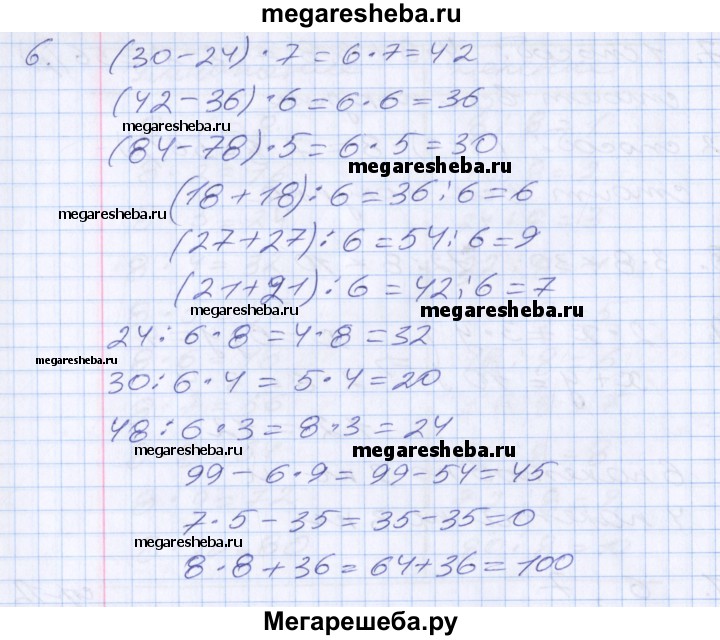 megaresheba.ru
6. (30-24)·7=6·7=42
(42-36)·6=6·6=36
megaresheba.ru
(84-78)·5=6·5=30
megaresheba.ru
(18+18):6=36:6=6
megaresheba.ru
(27+27):6=54:6=9
(21+21):6=42:6=7
megaresheba.ru
megaresheba.ru
24:6·8=4·8=32
megaresheba.ru
30:6·4=5·4=20
48:6·3=8·3=24
megaresheba.ru
megaresheba.ru
99-6·9=99-54=45
7·5-35=35-35=0
megaresheba.ru
8·8+36=64+36=100
Мегарешеба.ру